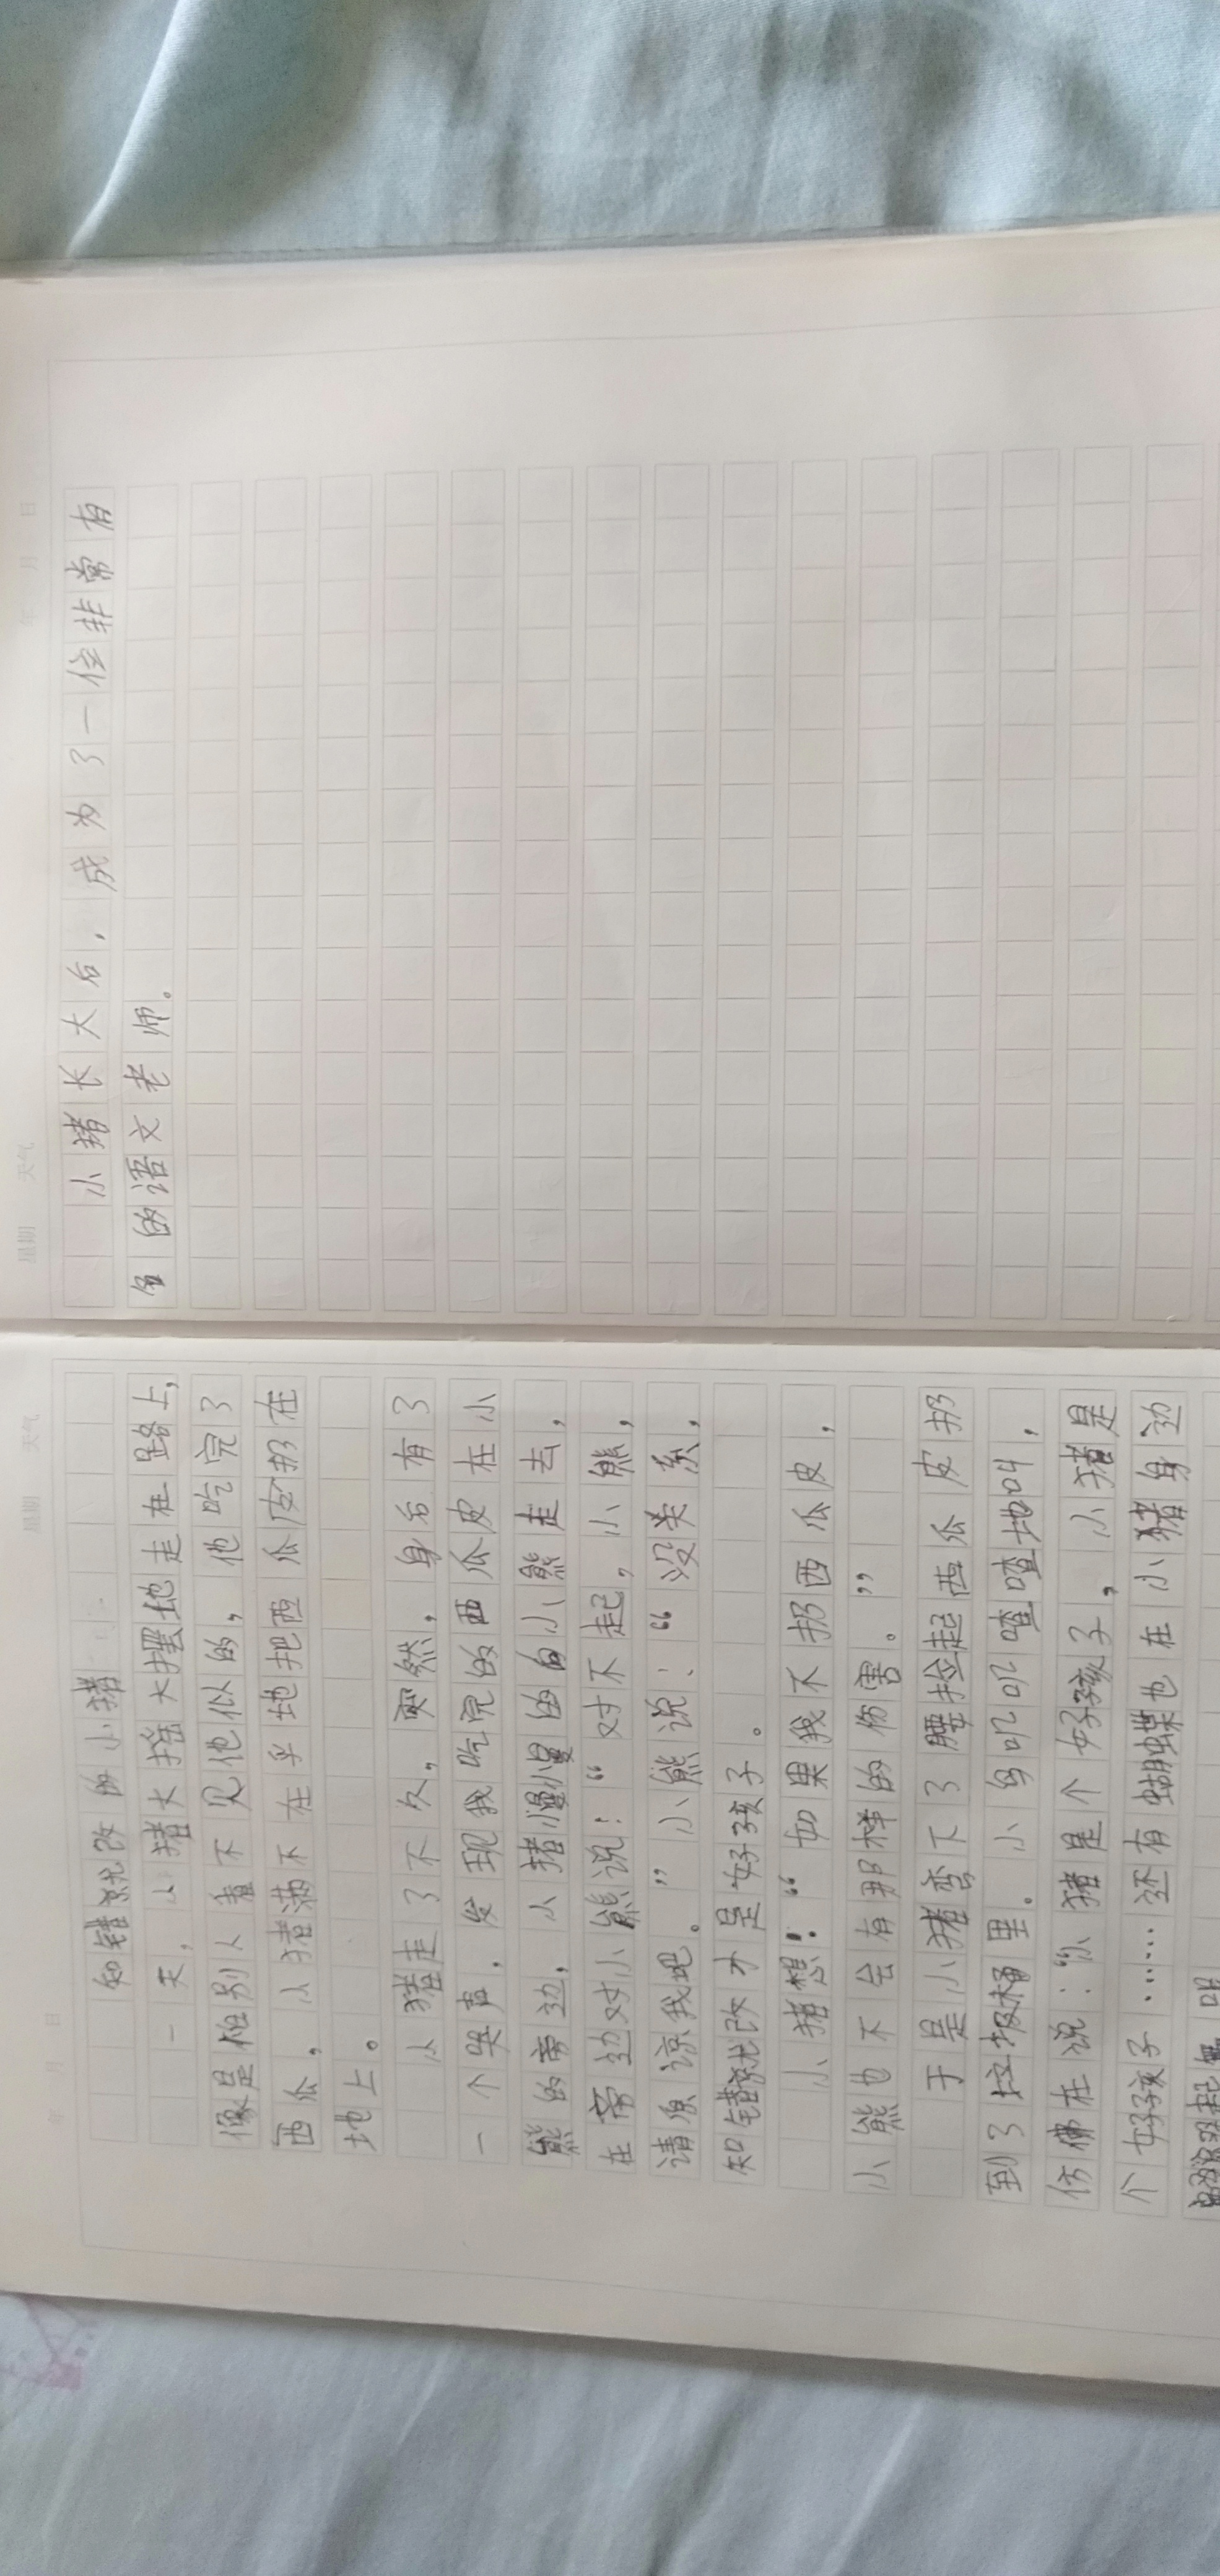 知错就改的小猪
一天，小猪大摇大摆地走在路上，
像是怕别人看不见他似的，他吃完了
西瓜，小猪满不在乎地把西瓜皮扔在
地上。
小猪走了不久，突然，身后有了
一个哭声，发现我吃完的西瓜皮在小
熊的旁边，小猪慢慢的向小熊走去，
在旁边对小熊说：“对不起，小熊，
请原谅我吧。”小熊说：“没关系，
知错就改才是好孩子。
小猪想：“如果我不扔西瓜皮，
小熊也不会有那样的伤害。”
于是小猪弯下了腰捡起西瓜皮扔
到了垃圾桶里。小鸟叽叽喳喳地叫，
仿佛在说：“小猪是个好孩子，小猪是
个好孩子……还有蝴蝶也在小猪身边
星期 天气
年 月 日
小猪长大后，成为了一位非常有
名的语文老师。
星期 天气
年 月 日